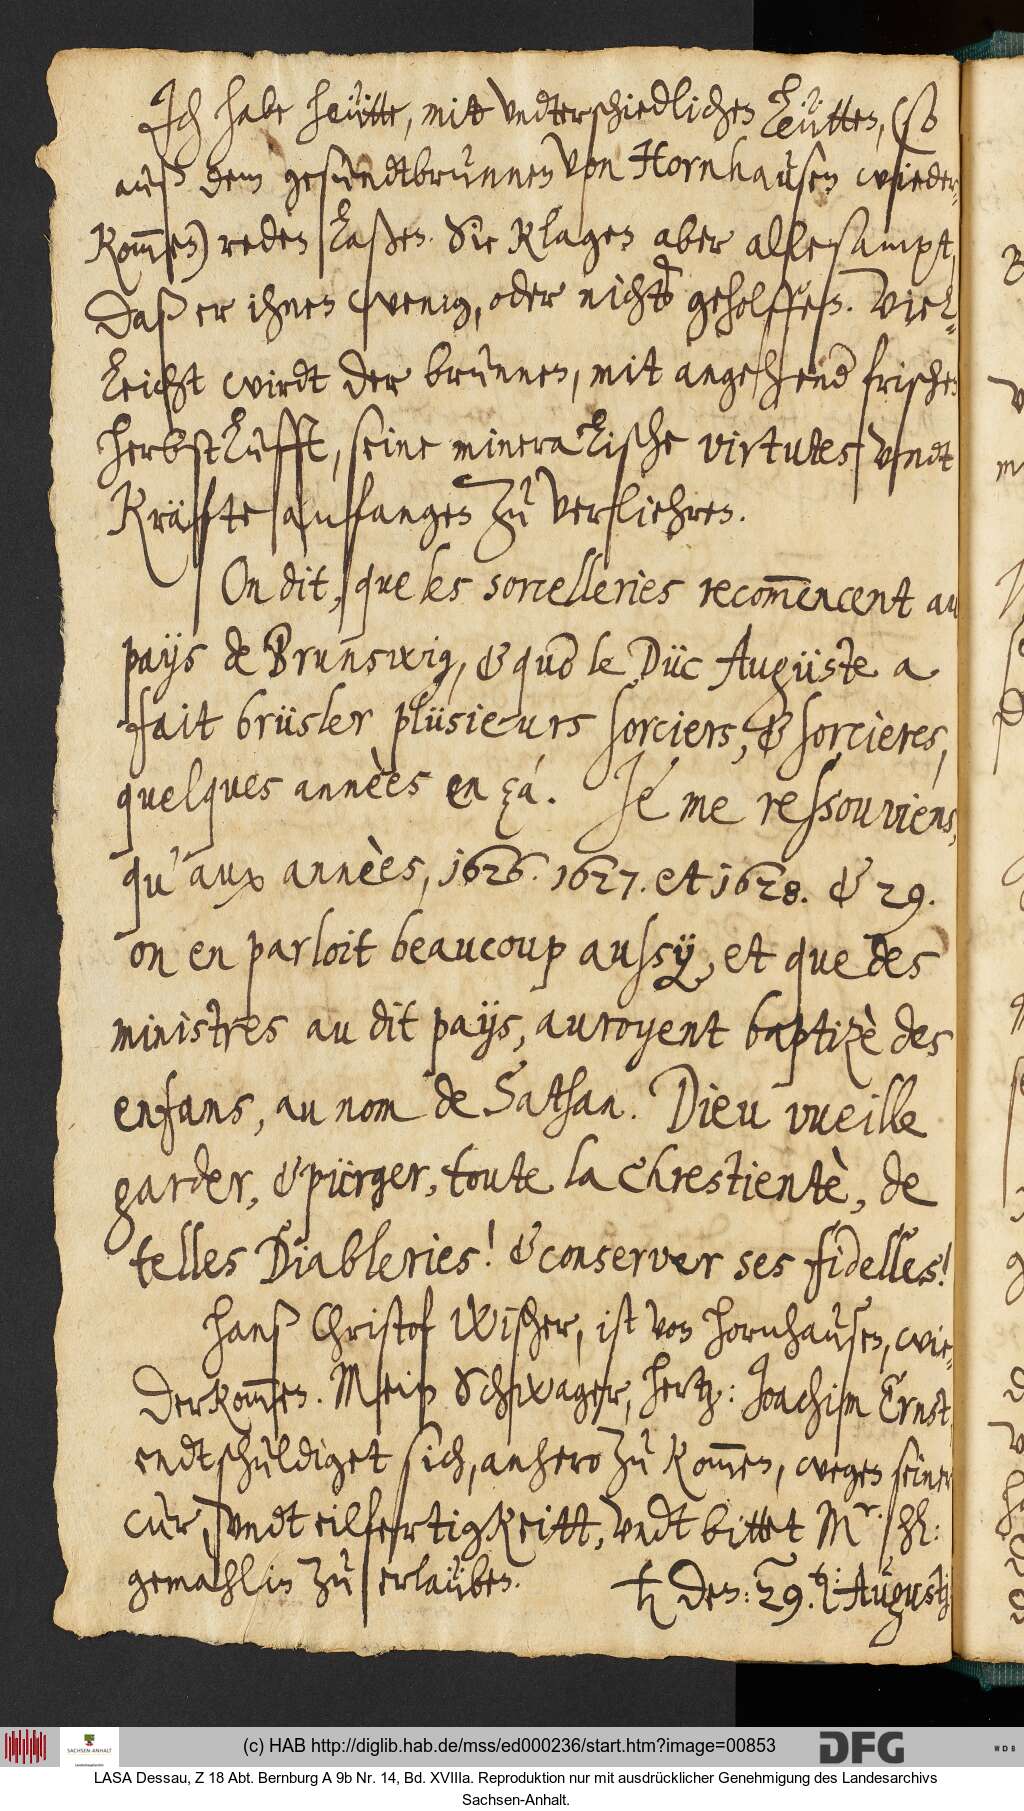 Ich habe heütte, mit vndterschiedlichen Leütten, (so
auß dem gesundtbrunnen von Hornhausen wieder-
kom̅en) reden laßen. Sie klagen aber allesampt,
daß er ihnen wenig, oder nichts geholffen. Viel-
leicht wirdt der brunnen, mit angehend frischer
herbstlufft, seine mineralische virtutes vndt
Kräfte anfangen zu verliehren.
On dit, que les sorcelleries recom̅encent au
paÿs de Brunswig, & que le Düc Augüste a
fait brüsler plüsieurs sorciers, & sorcieres,
quelques annèes en çá. Je me ressouviens,
qu'aux annèes, 1626. 1627. et 1628. & 29.
on en parloit beaucoup aussÿ, et que des
ministres au dit paÿs, auroyent baptizè des
enfans, au nom de Sathan. Dieu vueille
garder, & pürger, toute la Chrestientè, de
telles Diableries! & conserver ses fidelles!
Hanß Christof Wischer, ist von Hornhausen, wie-
derkom̅en. Mein Schwager, hertz: Joachim Ernst
endtschuldiget sich, anhero zu kom̅en, wegen seiner
cur, vndt eilfertigkeitt, vndt bittet Mr. hl:
gemahlin zu erlauben.
♄ den: 29. Augustj
(c) HAB http://diglib.hab.de/mss/ed000236/start.htm?image=00853
SACHSEN-ANHALT
DFG
WDB
LASA Dessau, Z 18 Abt. Bernburg A 9b Nr. 14, Bd. XVIIIa. Reproduktion nur mit ausdrücklicher Genehmigung des Landesarchivs
Sachsen-Anhalt.